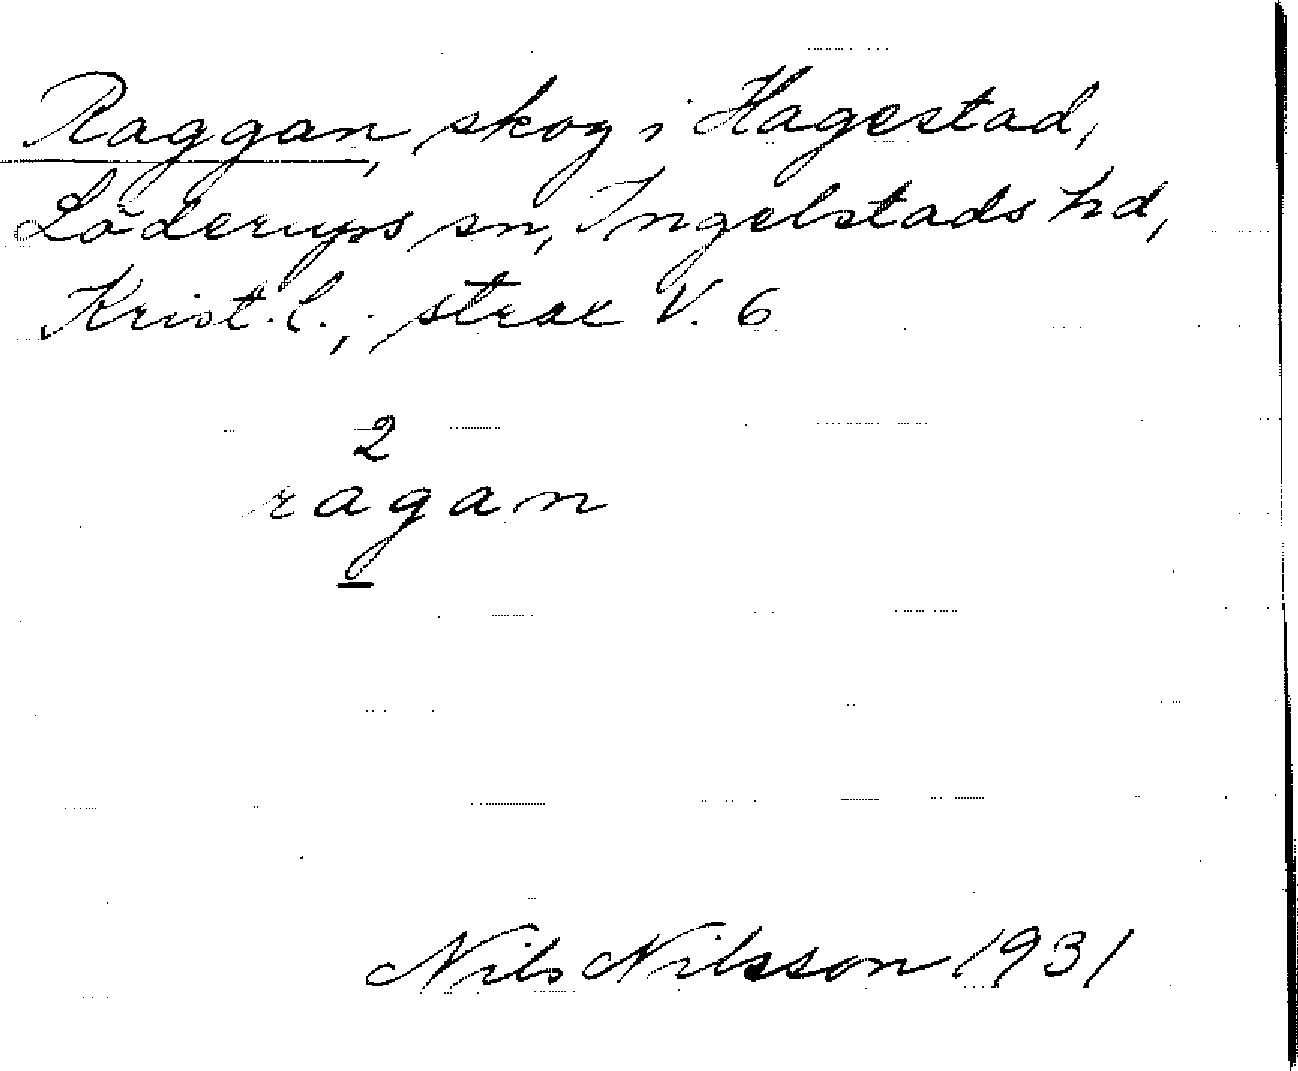 Raggan, skog i Hagestad,
Löderups sn, Ingelstads hd,
Krist. l., strax V. 6
2
ragan
Nils Nilsson 1931